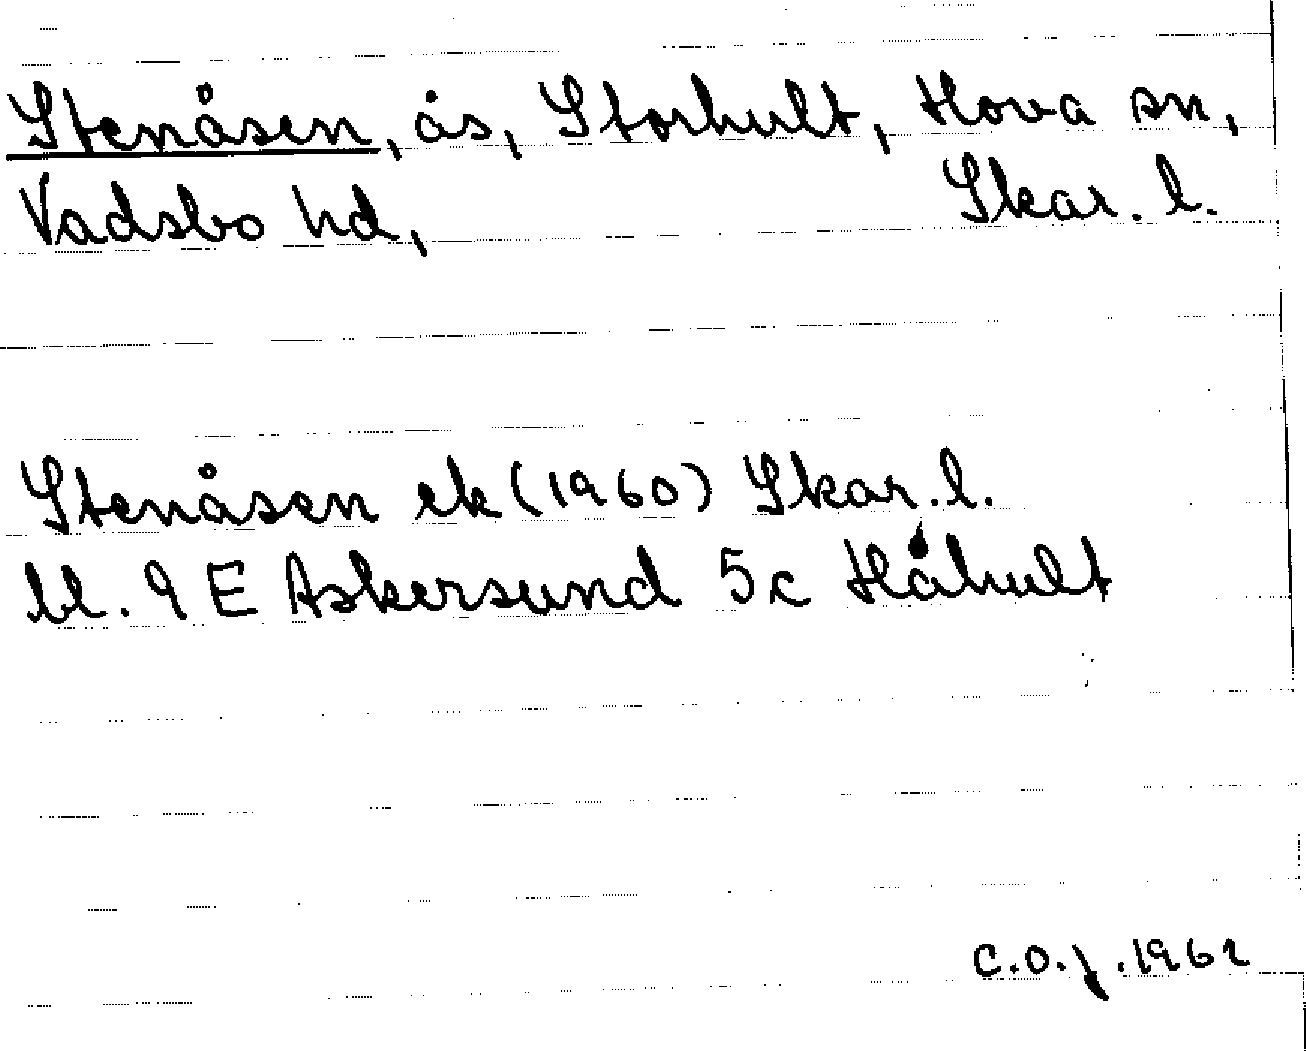 Stenåsen, ås, Storhult, Hova sn,
Vadsbo hd, Skar. l.
Stenåsen ek (1960) Skar. l.
bl. 9 E Askersund 5c Håhult
C.O.J. 1962